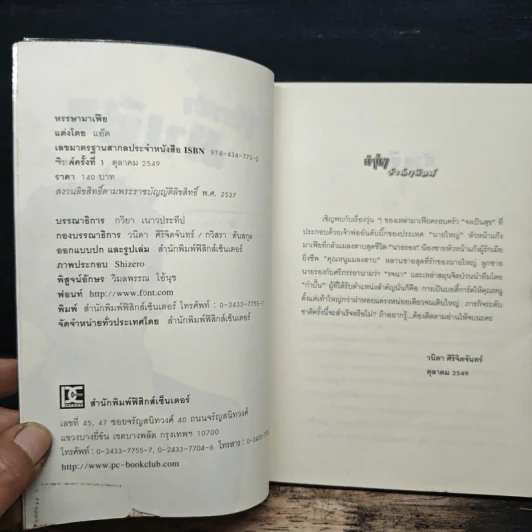 หรรษามาเฟีย
แต่งโดย แอ๊ด
เลขมาตรฐานสากลประจำหนังสือ ISBN 974-454-771-2
พิมพ์ครั้งที่ 1 ตุลาคม 2549
ราคา 140 บาท
สงวนลิขสิทธิ์ตามพระราชบัญญัติลิขสิทธิ์ พ.ศ. 2537
บรรณาธิการ กวิยา เนาวประทีป
กองบรรณาธิการ วนิดา ศิริจิตจันทร์ / กวิสรา ตันสกุล
ออกแบบปก และรูปเล่ม สำนักพิมพ์ฟิสิกส์เซ็นเตอร์
ภาพประกอบ Shizero
พิสูจน์อักษร วิมลพรรณ ไข้นุช
ฟอนท์ http://www.font.com
พิมพ์ สำนักพิมพ์ฟิสิกส์เซ็นเตอร์ โทรศัพท์ : 0-2433-7755-7,
จัดจำหน่ายทั่วประเทศโดย สำนักพิมพ์ฟิสิกส์เซ็นเตอร์
สำนักพิมพ์ฟิสิกส์เซ็นเตอร์
เลขที่ 45, 47 ซอยจรัญสนิทวงศ์ 40 ถนนจรัญสนิทวงศ์
แขวงบางยี่ขัน เขตบางพลัด กรุงเทพฯ 10700
โทรศัพท์ : 0-2433-7755-7, 0-2433-7704-6 โทรสาร : 0-2433-
http://www.pc-bookclub.com
คำนำ
สำนักพิมพ์
เชิญพบกับเรื่องวุ่น ๆ ของเหล่ามาเฟียครอบครัว “จงเป็นสุข” ที่
ประกอบด้วยเจ้าพ่ออันดับบิ๊กของประเทศ “นายใหญ่” หัวหน้าแก๊ง
มาเฟียที่กลัวแมลงสาบสุดชีวิต “นายรอง” น้องชายหัวหน้าแก๊งผู้รักเมีย
ยิ่งชีพ “คุณหนูแมลงสาบ” หลานชายสุดที่รักของนายใหญ่ ลูกชาย
นายรองกับศรีภรรยานามว่า “รจนา” และเหล่าสมุนจิตป่วนนำทีมโดย
“กำปั้น” ผู้ที่ได้รับตำแหน่งสำคัญนั่นก็คือ การเป็นบอดี้การ์ดให้คุณหนู
ตั้งแต่เท้าใหญ่กว่าฝาหอยแครงหน่อยเดียวจนเติบใหญ่ ภารกิจระดับ
ชาติครั้งนี้จะสำเร็จหรือไม่? ถ้าอยากรู้...ต้องติดตามอ่านให้จบนะคะ
วนิดา ศิริจิตจันทร์
ตุลาคม 2549